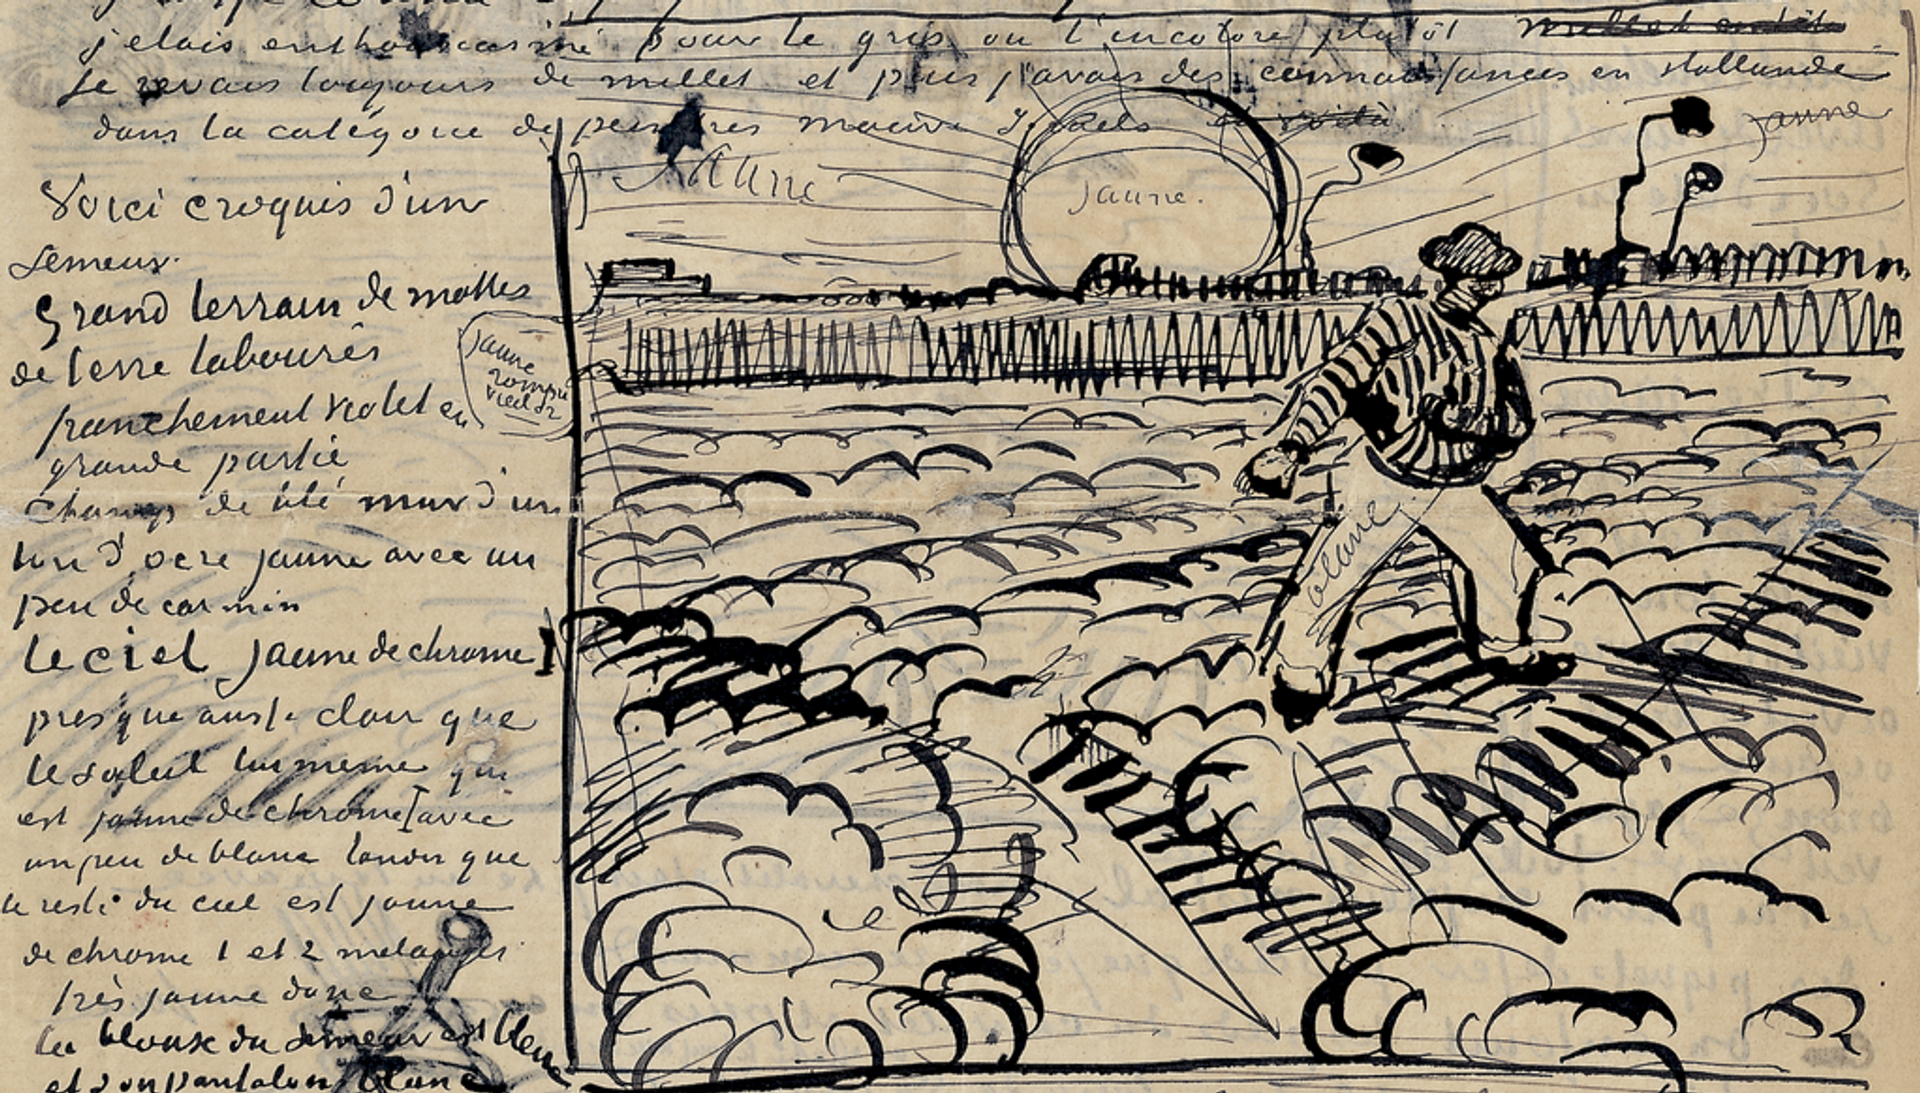 j'etais enthousiasmé pour le gris ou l'incolore plutôt
Je revais toujours de millet et puis j'avais des connaissances en Hollande
dans la catégorie de peintres mauve Israels et voilà
jaune
Jaune
jaune.
Voici croquis d'un
Semeur.
Grand terrain de mottes
de terre labourés
franchement violet en
grande partie
Champ de blé mur d'un
ton d'ocre jaune avec un
peu de carmin
jaune
rompu
vieil or
blanc
Le ciel jaune de chrome
presque aussi clair que
le soleil lui meme qui
est jaune de chrome 1 avec
un peu de blanc tandis que
le reste du ciel est jaune
de chrome 1 et 2 melangés
très jaune donc
La blouse du Semeur est bleue
et son pantalon blanc